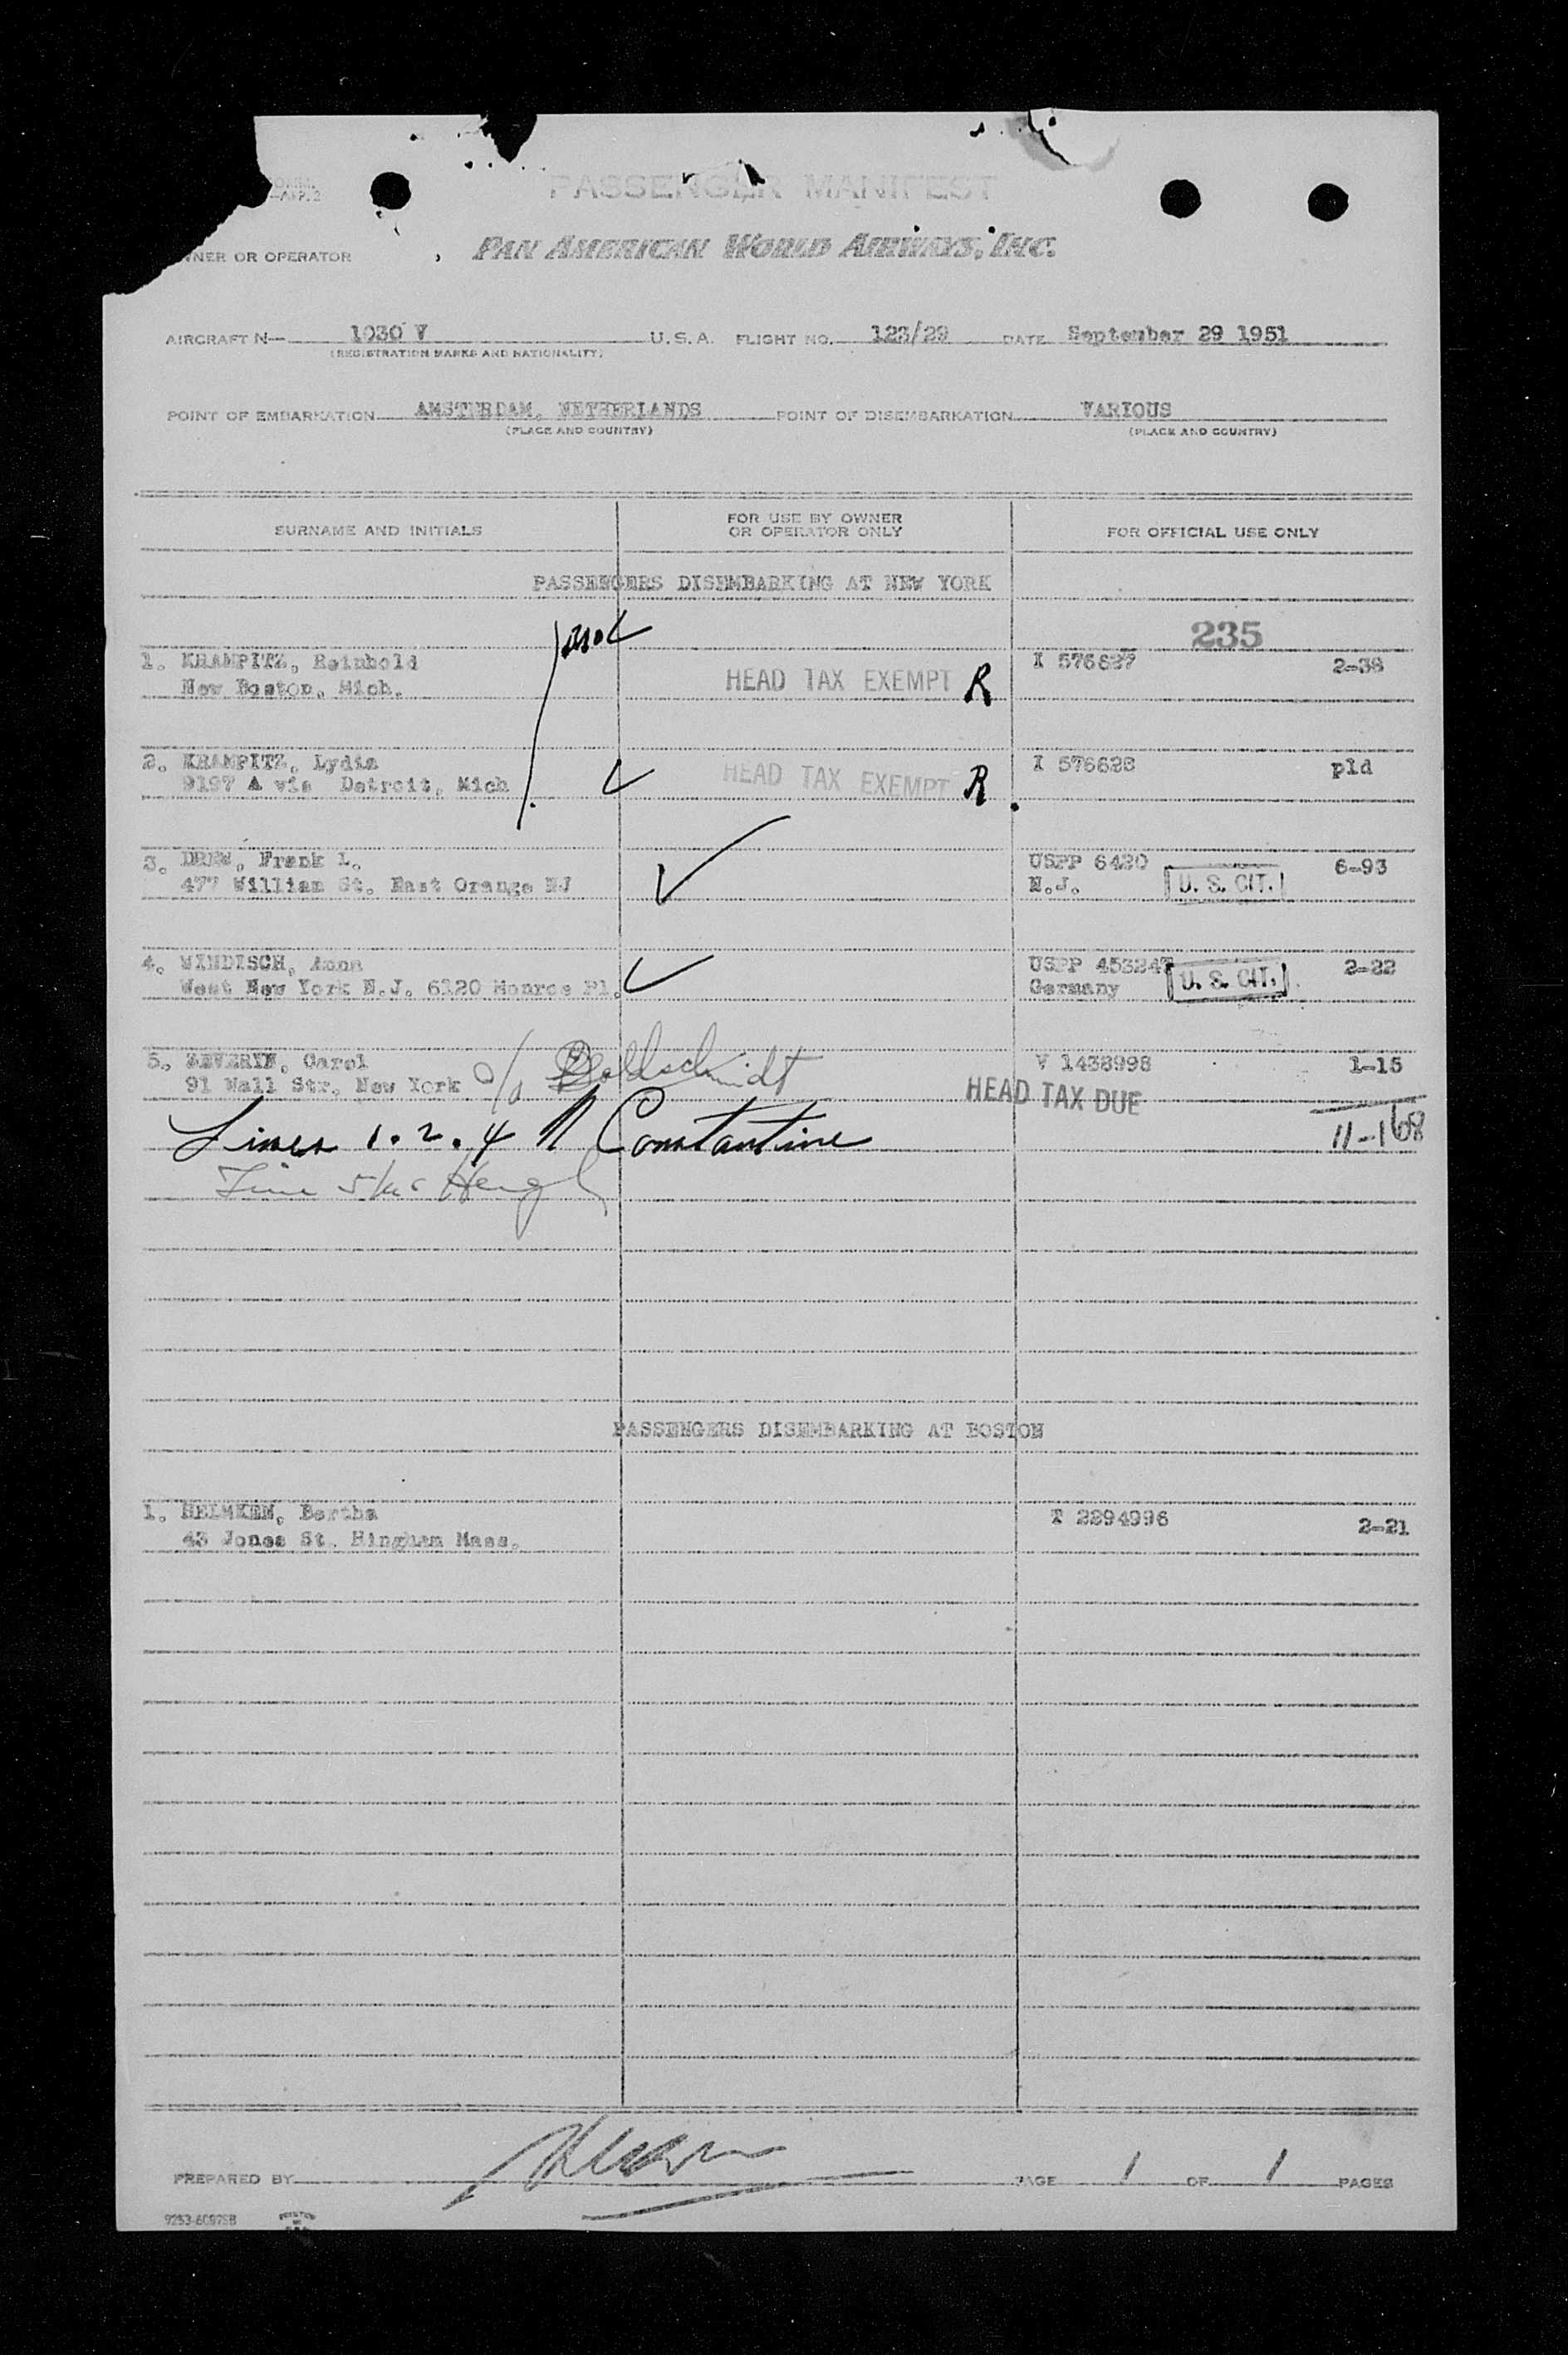 PASSENGER MANIFEST
OWNER OR OPERATOR PAN AMERICAN WORLD AIRWAYS, INC.
AIRCRAFT N— 1030 V U. S. A. FLIGHT NO. 123/29 DATE September 29 1951
(REGISTRATION MARKS AND NATIONALITY)
POINT OF EMBARKATION AMSTERDAM, NETHERLANDS POINT OF DISEMBARKATION VARIOUS
(PLACE AND COUNTRY) (PLACE AND COUNTRY)
SURNAME AND INITIALS FOR USE BY OWNER OR OPERATOR ONLY FOR OFFICIAL USE ONLY
PASSENGERS DISEMBARKING AT NEW YORK
235
1. KRAMPITZ, Reinhold I 576627 2-38
New Boston, Mich. HEAD TAX EXEMPT R
2. KRAMPITZ, Lydia HEAD TAX EXEMPT R I 576628 pld
9197 A via Detroit, Mich
3. DREW, Frank L. USPP 6420 6-93
477 William St. East Orange NJ N.J. U. S. CIT.
4. WINDISCH, Anna USPP 453247 2-22
West New York N.J. 6120 Monroe Pl. Germany U. S. CIT.
5. ZEVERIN, Carel c/o Goldschmidt V 1438998 1-15
91 Wall Str. New York HEAD TAX DUE
Lines 1. 2. 4 Constantine 11-168
Line 5
PASSENGERS DISEMBARKING AT BOSTON
1. HELMKEN, Bertha T 2294996 2-21
43 Jones St. Hingham Mass.
PREPARED BY PAGE 1 OF 1 PAGES